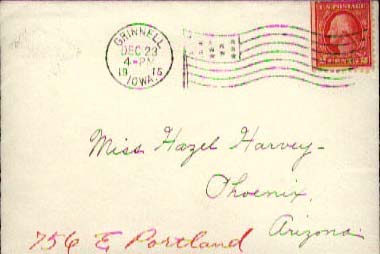 GRINNELL
DEC 23
4-PM
1915
IOWA.
U.S. POSTAGE
2 CENTS 2
Miss Hazel Harvey-
Phoenix,
Arizona
756 E Portland